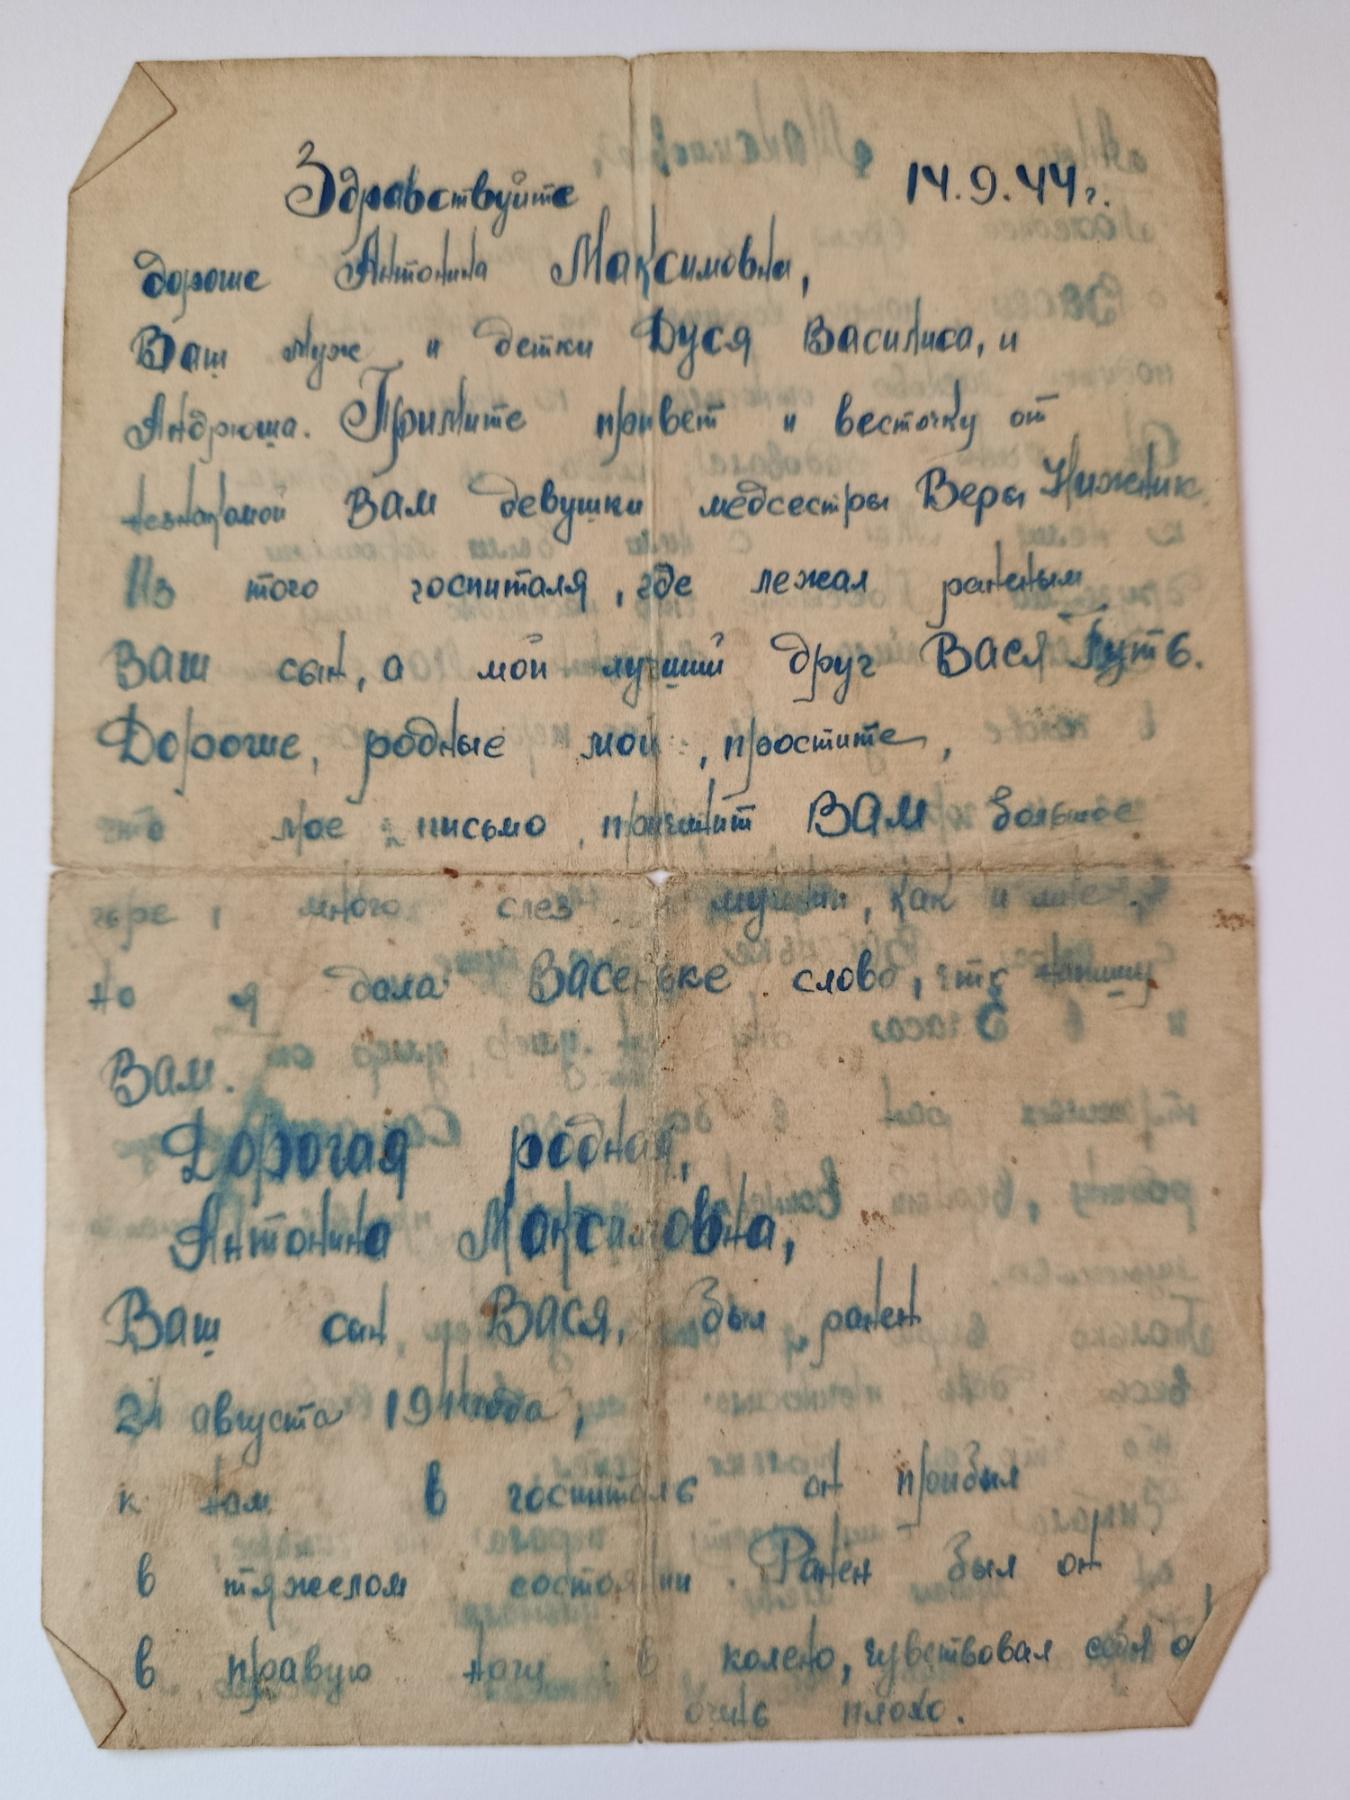 Здравствуйте 14.9.44г.
дорогие Антонина Максимовна,
Ваш муж и детки Дуся Василиса, и
Андрюша. Примите привет и весточку от
незнакомой Вам девушки медсестры Веры Нижник.
Из того госпиталя, где лежал раненым
Ваш сын, а мой лучший друг Вася Путь.
Дорогие, родные мои, простите,
что мое письмо причинит Вам большое
горе, много слез мучений, как и мне.
но я дала Васеньке слово, что напишу
Вам.
Дорогая родная,
Антонина Максимовна,
Ваш сын Вася, был ранен
августа 1944 года,
к нам в госпиталь он прибыл
в тяжелом состоянии. Ранен был он
в правую ногу в колено, чувствовал себя
очень плохо.